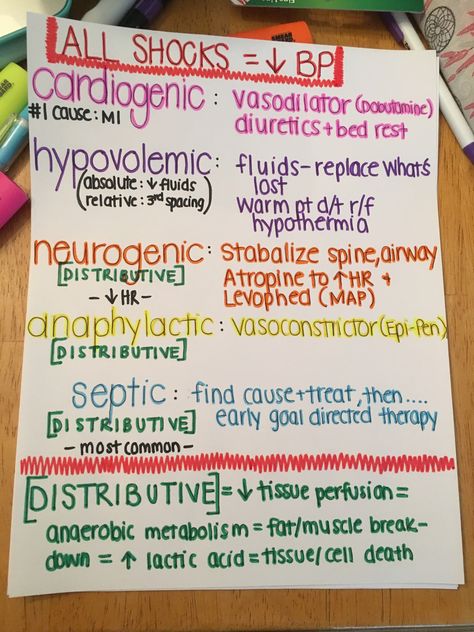 ALL SHOCKS = ↓ BP
cardiogenic : vasodilator (Dobutamine)
#1 cause: MI diuretics + bed rest
hypovolemic : fluids - replace what's lost
(absolute: ↓ fluids
relative: 3rd spacing) warm pt d/t r/f hypothermia
neurogenic : Stabalize spine, airway
[DISTRIBUTIVE] Atropine to ↑ HR +
- ↓ HR - Levophed (MAP)
anaphylactic : vasoconstrictor (Epi-Pen)
[DISTRIBUTIVE]
septic : find cause + treat, then ....
[DISTRIBUTIVE] early goal directed therapy
- most common -
[DISTRIBUTIVE] = ↓ tissue perfusion =
anaerobic metabolism = fat/muscle break-
down = ↑ lactic acid = tissue/cell death